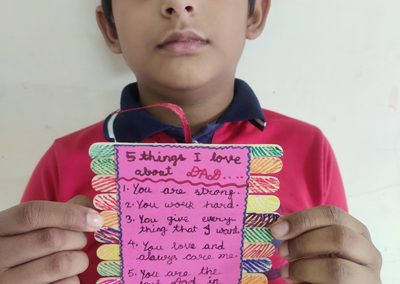 5 things I love
about DAD....
1. You are strong.
2. You work hard.
3. You give every
thing that I want.
4. You love and
always care me.
5. You are the
best Dad in